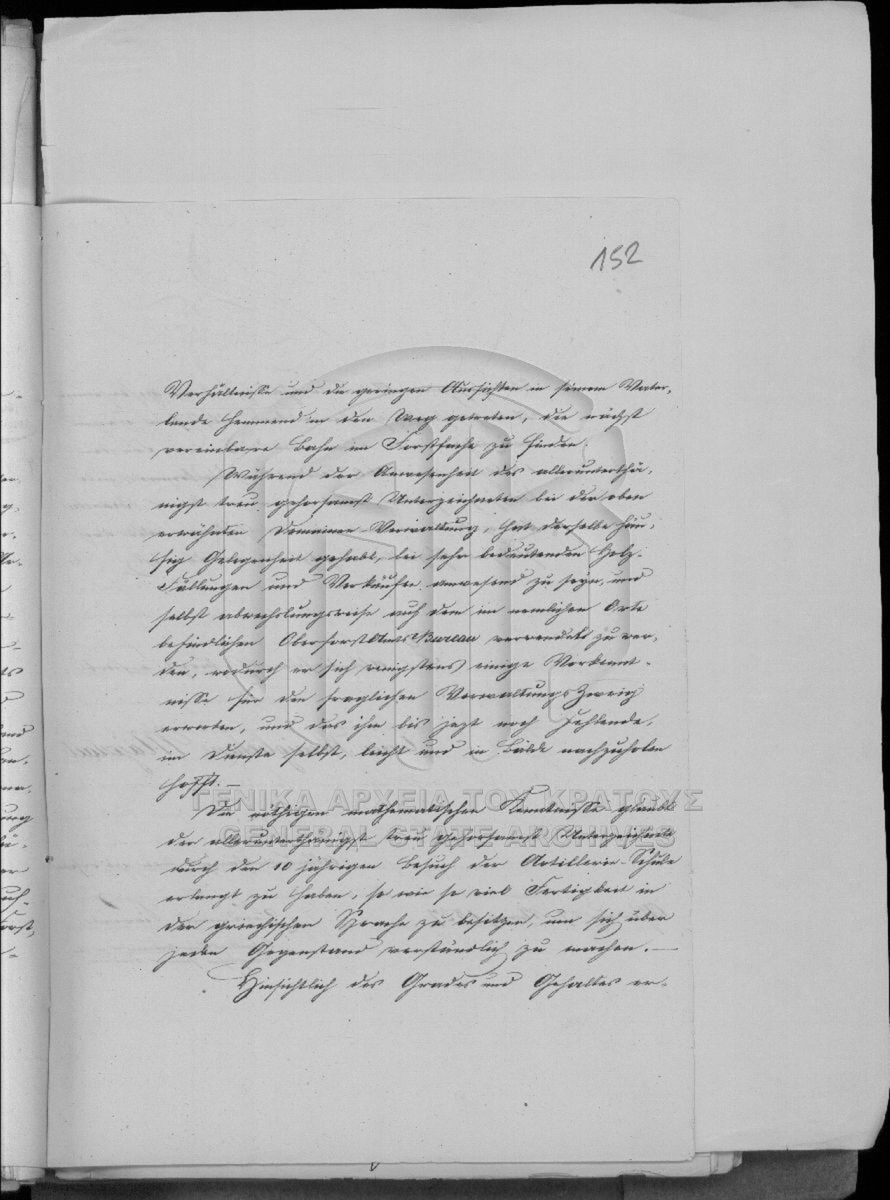 152
Verhältnisse und die geringen Aussichten in seinem Vater-
lande hemmend in den Weg getreten, die nächst
vereinbare Bahn im Forstfache zu finden.
Während der Anwesenheit des allerunterthä-
nigst treu gehorsamst Unterzeichneten bei der oben
erwähnten Domainen-Verwaltung, hat derselbe häu-
fig Gelegenheit gehabt, bei sehr bedeutenden Holz-
Fällungen und Verkäufen anwesend zu seyn, und
selbst abwechslungsweise auf dem im nemlichen Orte
befindlichen Oberforstamts Bureau verwendet zu wer-
den, wodurch er sich wenigstens einige Vorkennt-
nisse für den fraglichen Verwaltungs Zweig
erworben, und das ihm bis jezt noch Fehlende,
im Dienste selbst, leicht und in Bälde nachzuholen
hofft. —
Die nöthigen mathematischen Kenntnisse glaubt
der allerunterthänigst treu gehorsamst Unterzeichnete
durch den 10 jährigen Besuch der Artillerie-Schule
erlangt zu haben, so wie so viel Fertigkeit in
der griechischen Sprache zu besitzen, um sich über
jeden Gegenstand verständlich zu machen. —
Hinsichtlich des Grades und Gehaltes er-
ΓΕΝΙΚΑ ΑΡΧΕΙΑ ΤΟΥ ΚΡΑΤΟΥΣ
GENERAL STATE ARCHIVES